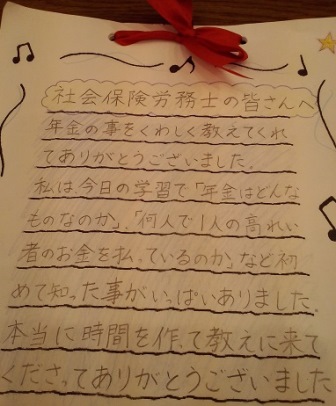 社会保険労務士の皆さんへ
年金の事をくわしく教えてくれ
てありがとうございました。
私は今日の学習で「年金はどんな
ものなのか」、「何人で1人の高れい
者のお金を払っているのか」など初
めて知った事がいっぱいありました。
本当に時間を作って教えに来て
くださってありがとうございました